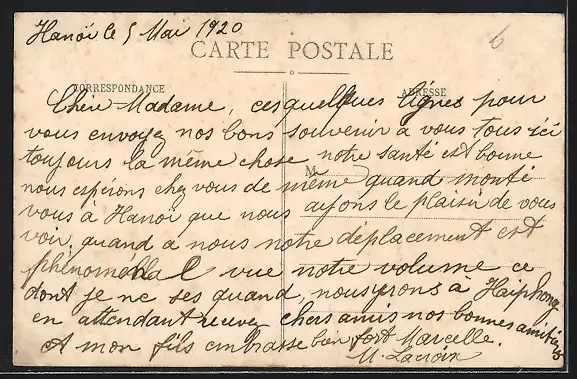 Hanoï le 5 Mai 1920
6
CARTE POSTALE
CORRESPONDANCE
ADRESSE
Chère Madame, ces quelques lignes pour
vous envoyez nos bons souvenir a vous tous ici
toujours la même chose, notre santé est bonne
M
nous espérons chez vous de même quand monté
vous à Hanoï que nous ayons le plaisir de vous
voir, quand a nous notre déplacement est
phénoménal vue notre volume ce
dont je ne ses quand, nous irons à Haïphong
en attendant recevez chers amis nos bonnes amitiés
A mon fils embrasse bien fort Marcelle.
M. Lacroix